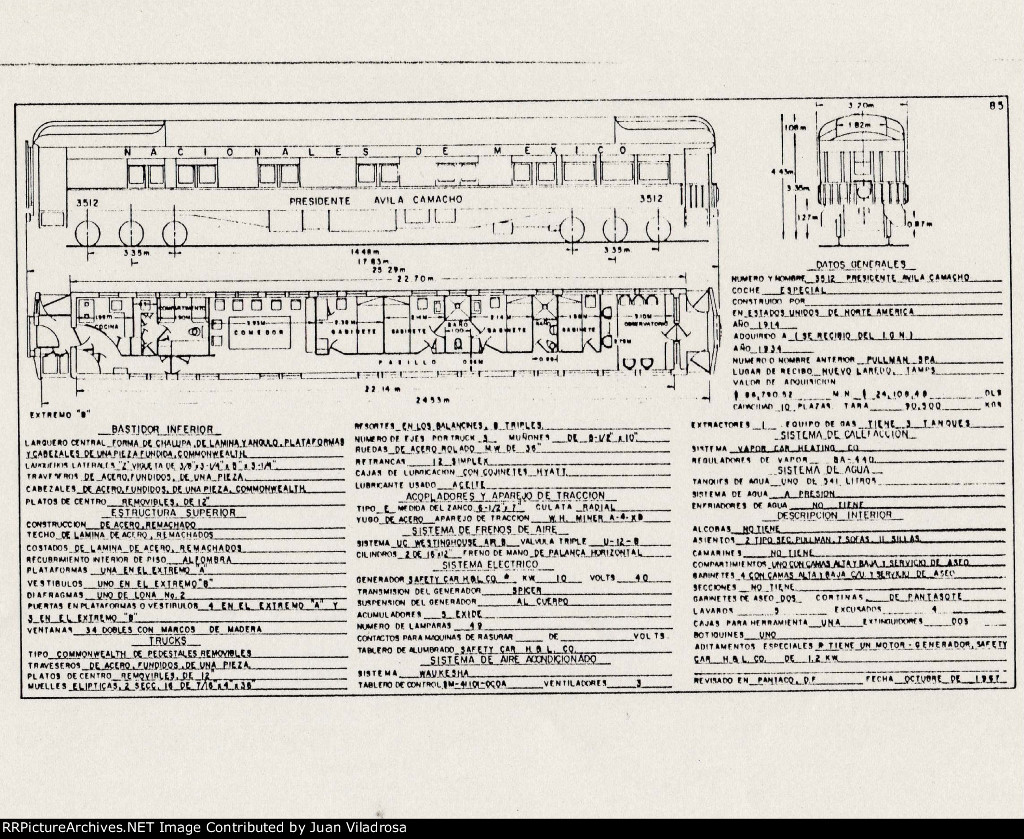 85
3.20m
1.82m
1.08m
4.43m
3.35m
1.27m
0.87m
NACIONALES DE MEXICO
3512 PRESIDENTE AVILA CAMACHO 3512
3.35m 3.35m
14.48m
17.83m
25.29m
22.70m
COCINA COMEDOR GABINETE GABINETE BAÑO GABINETE BAÑO GABINETE OBSERVATORIO
PASILLO
22.14m
24.53m
EXTREMO "B"
DATOS GENERALES
NUMERO Y NOMBRE 3512 PRESIDENTE AVILA CAMACHO
COCHE ESPECIAL
CONSTRUIDO POR
EN ESTADOS UNIDOS DE NORTE AMERICA
AÑO 1914
ADQUIRIDO A (SE RECIBIO DEL I.G.N.)
AÑO 1934
NUMERO O NOMBRE ANTERIOR PULLMAN SPA.
LUGAR DE RECIBO NUEVO LAREDO, TAMPS
VALOR DE ADQUISICION
M N $ 24,108.48 DLS
CAPACIDAD 10 PLAZAS TARA 90,500 KGS
BASTIDOR INFERIOR
LARGUERO CENTRAL FORMA DE CHALUPA, DE LAMINA Y ANGULO, PLATAFORMAS
Y CABEZALES DE UNA PIEZA FUNDIDA, COMMONWEALTH
LARGUEROS LATERALES "Z" VIGUETA DE
TRAVESEROS DE ACERO, FUNDIDOS, DE UNA PIEZA
CABEZALES DE ACERO, FUNDIDOS, DE UNA PIEZA, COMMONWEALTH
PLATOS DE CENTRO REMOVIBLES, DE 12"
ESTRUCTURA SUPERIOR
CONSTRUCCION DE ACERO, REMACHADO
TECHO DE LAMINA DE ACERO, REMACHADOS
COSTADOS DE LAMINA DE ACERO, REMACHADOS
RECUBRIMIENTO INTERIOR DE PISO ALFOMBRA
PLATAFORMAS UNA EN EL EXTREMO "A"
VESTIBULOS UNO EN EL EXTREMO "B"
DIAFRAGMAS UNO DE LONA No. 2
PUERTAS EN PLATAFORMAS O VESTIBULOS 4 EN EL EXTREMO "A" Y
3 EN EL EXTREMO "B"
VENTANAS 34 DOBLES CON MARCOS DE MADERA
TRUCKS
TIPO COMMONWEALTH DE PEDESTALES REMOVIBLES
TRAVESEROS DE ACERO, FUNDIDOS, DE UNA PIEZA
PLATOS DE CENTRO REMOVIBLES, DE 12"
MUELLES ELIPTICAS, 2 SECC. 16 DE 7/16"x4"x36"
RESORTES EN LOS BALANCINES, 8 TRIPLES
NUMERO DE EJES POR TRUCK 3 MUÑONES DE 5-1/2"x10"
RUEDAS DE ACERO ROLADO M W DE 36"
RETRANCAS 12 SIMPLEX
CAJAS DE LUBRICACION CON COJINETES HYATT
LUBRICANTE USADO ACEITE
ACOPLADORES Y APAREJO DE TRACCION
TIPO E MEDIDA DEL ZANCO 6-1/2"x7" CULATA RADIAL
YUGO DE ACERO APAREJO DE TRACCION W.H. MINER A-4-XB
SISTEMA DE FRENOS DE AIRE
SISTEMA UC WESTINGHOUSE AIR B VALVULA TRIPLE U-12-B
CILINDROS 2 DE 16"x12" FRENO DE MANO DE PALANCA HORIZONTAL
SISTEMA ELECTRICO
GENERADOR SAFETY CAR H&L CO * KW 10 VOLTS 40
TRANSMISION DEL GENERADOR SPICER
SUSPENSION DEL GENERADOR AL CUERPO
ACUMULADORES 5 EXIDE
NUMERO DE LAMPARAS 49
CONTACTOS PARA MAQUINAS DE RASURAR DE VOLTS
TABLERO DE ALUMBRADO SAFETY CAR H.& L. CO.
SISTEMA DE AIRE ACONDICIONADO
SISTEMA WAUKESHA
TABLERO DE CONTROL BM-41101-0C0A VENTILADORES 3
EXTRACTORES 1 EQUIPO DE GAS TIENE 3 TANQUES
SISTEMA DE CALEFACCION
SISTEMA VAPOR CAR HEATING CO
REGULADORES DE VAPOR BA-440
SISTEMA DE AGUA
TANQUES DE AGUA UNO DE 341 LITROS
SISTEMA DE AGUA A PRESION
ENFRIADORES DE AGUA NO TIENE
DESCRIPCION INTERIOR
ALCOBAS NO TIENE
ASIENTOS 2 TIPO SEC. PULLMAN, 7 SOFAS, 11 SILLAS
CAMARINES NO TIENE
COMPARTIMIENTOS UNO CON CAMAS ALTA Y BAJA Y SERVICIO DE ASEO
GABINETES 4 CON CAMAS ALTA Y BAJA C/U Y SERVICIO DE ASEO
SECCIONES NO TIENE
GABINETES DE ASEO DOS CORTINAS DE PANTASOTE
LAVABOS 5 EXCUSADOS 4
CAJAS PARA HERRAMIENTA UNA EXTINGUIDORES DOS
BOTIQUINES UNO
ADITAMENTOS ESPECIALES * TIENE UN MOTOR-GENERADOR, SAFETY
CAR H & L CO. DE 1.2 KW
REVISADO EN PANTACO, D.F FECHA OCTUBRE DE 1957
RRPictureArchives.NET Image Contributed by Juan Viladrosa